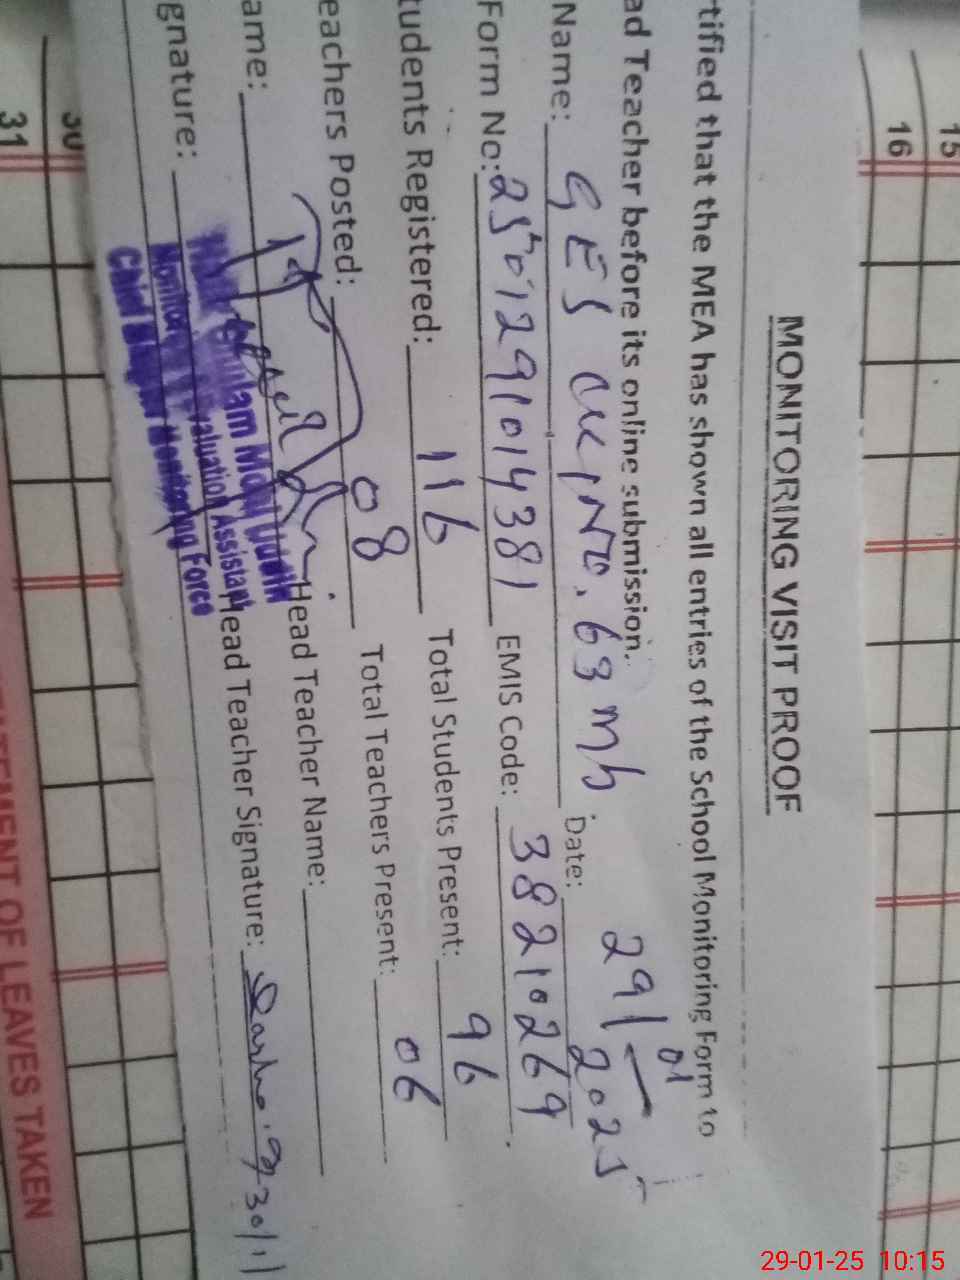 MONITORING VISIT PROOF
rtified that the MEA has shown all entries of the School Monitoring Form to
ad Teacher before its online submission.
Name: GES No. 63 mb Date: 29/01/2025
Form No: 2501291014381 EMIS Code: 38210269
tudents Registered: 116 Total Students Present: 96
eachers Posted: 08 Total Teachers Present: 06
ame: Head Teacher Name:
gnature: Head Teacher Signature:
Ghulam
Monitoring Evaluation Assistant
Chief Minister Monitoring Force
15
16
30
31
TEMENT OF LEAVES TAKEN
29-01-25 10:15